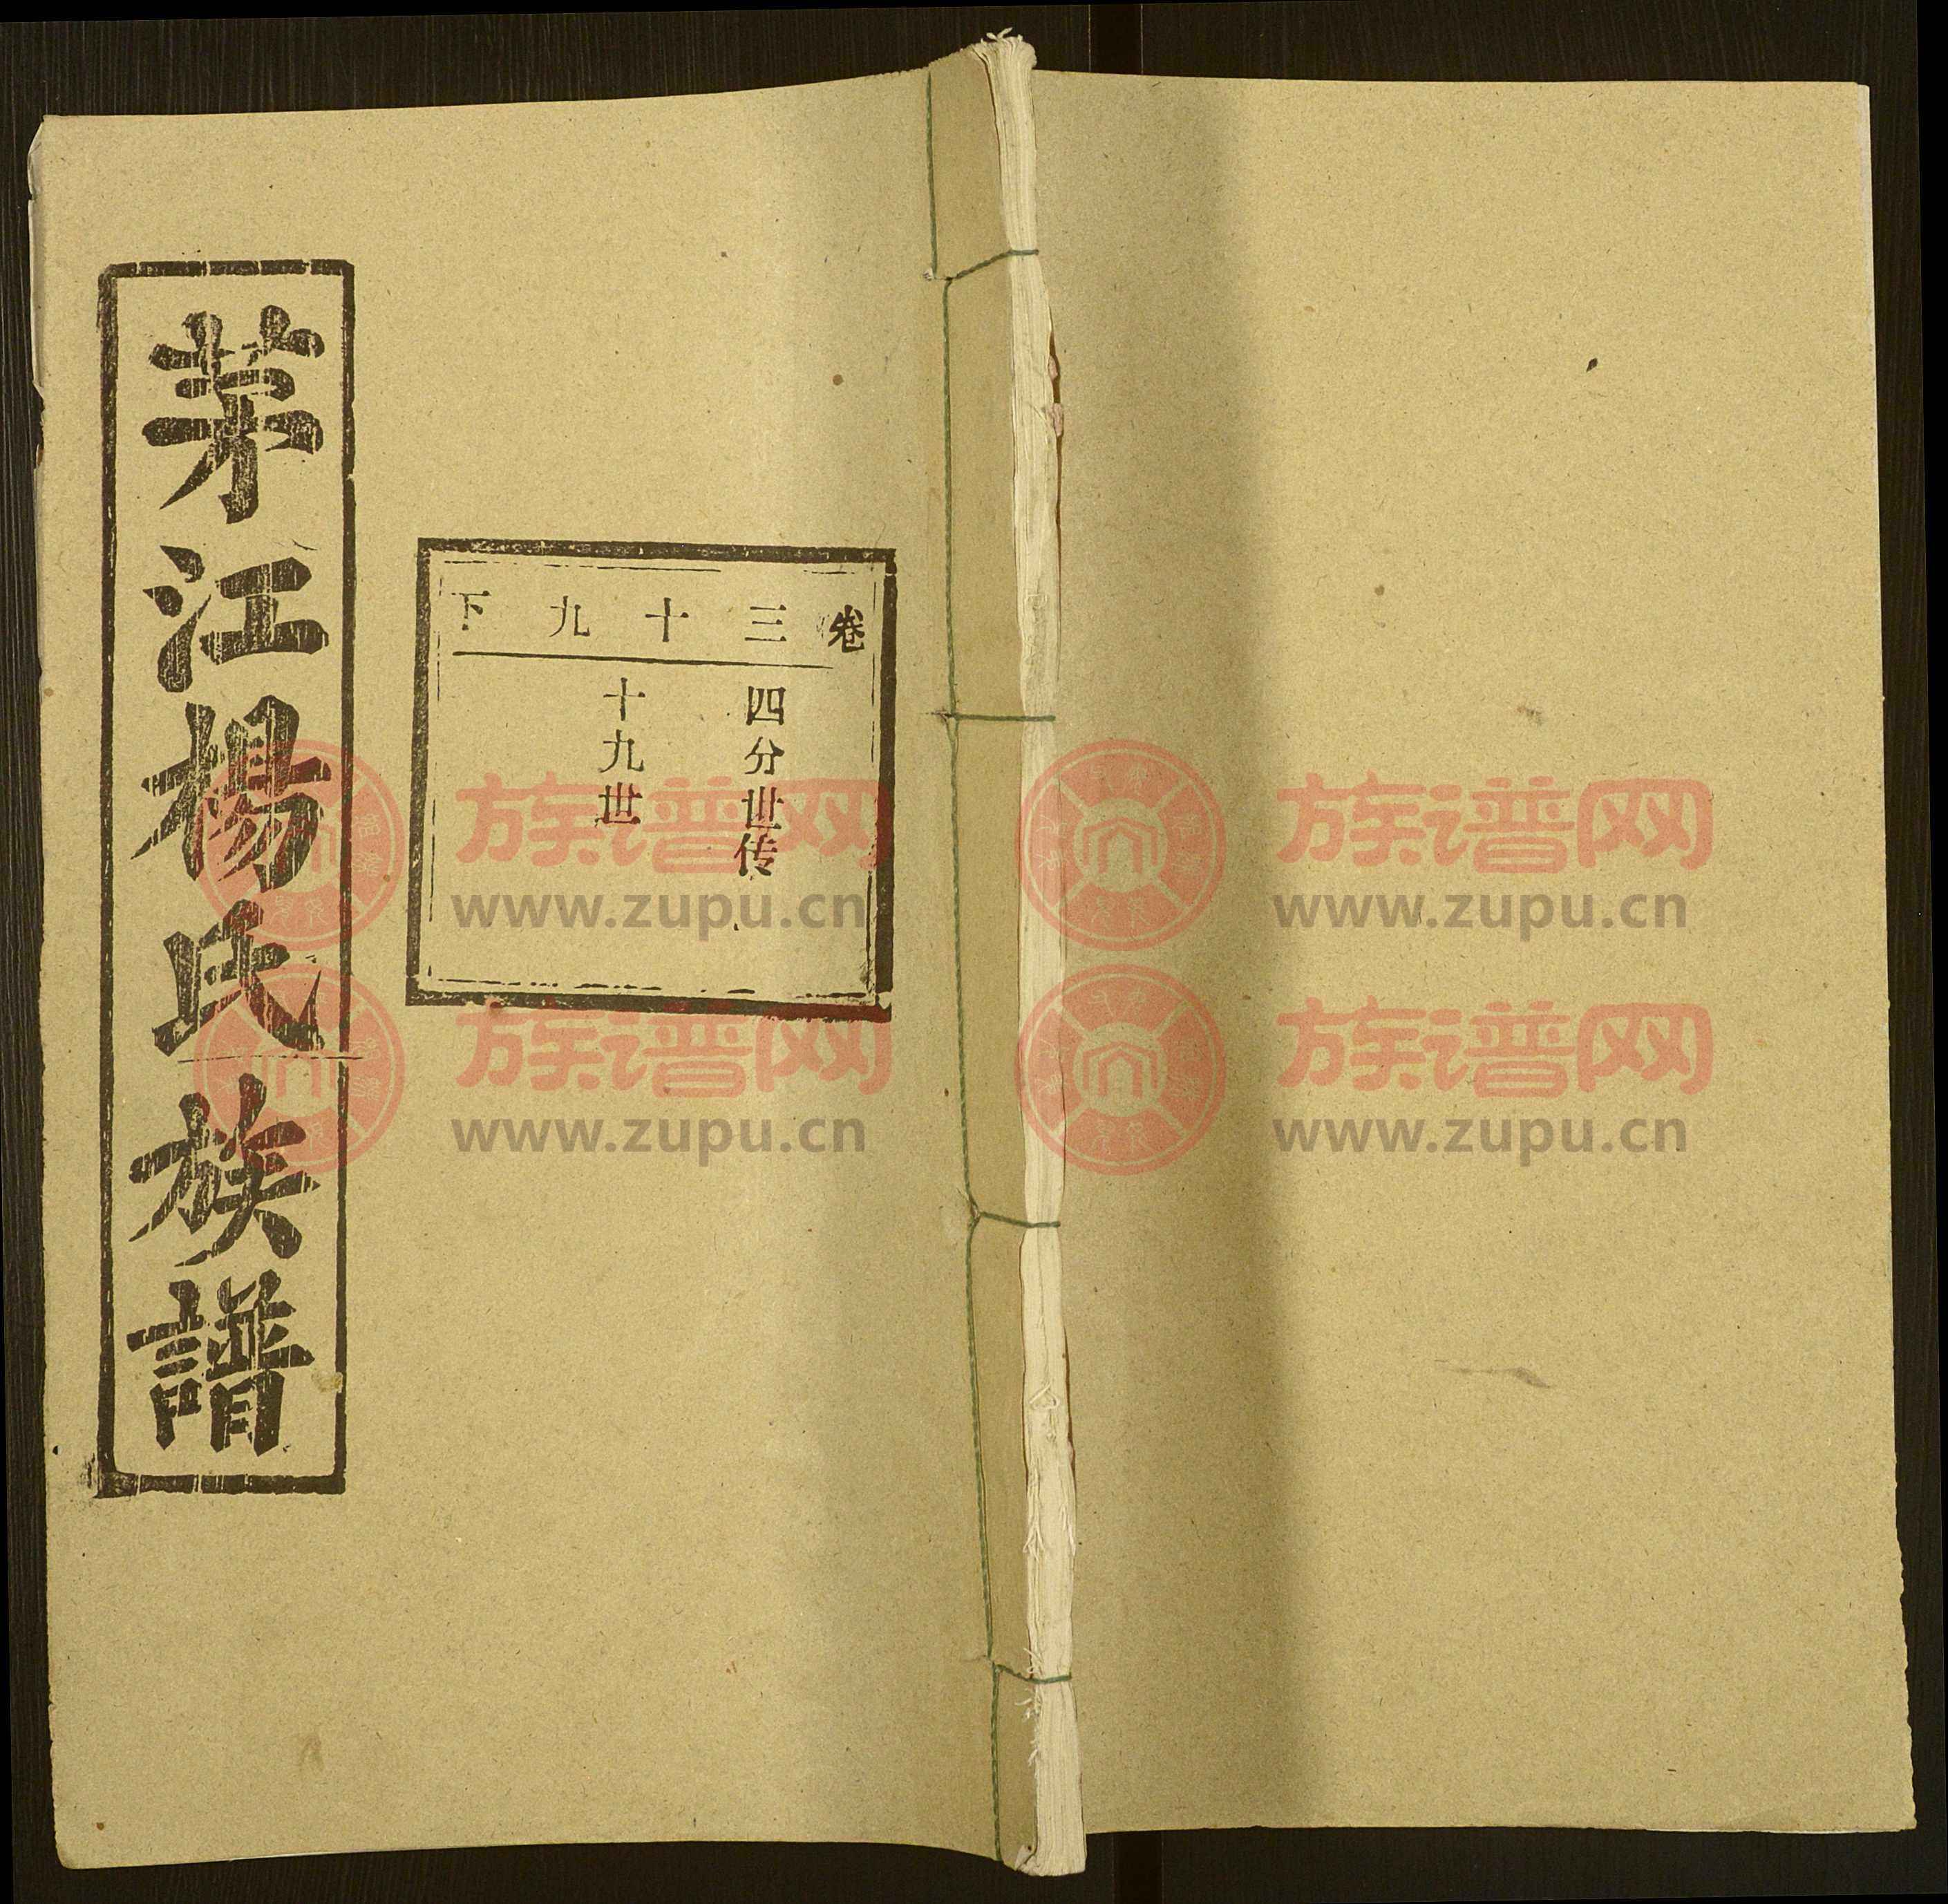 茅江楊氏族譜
卷三十九下
四分世传
十九世
族谱网
www.zupu.cn
族谱网
www.zupu.cn
族谱网
www.zupu.cn
族谱网
www.zupu.cn